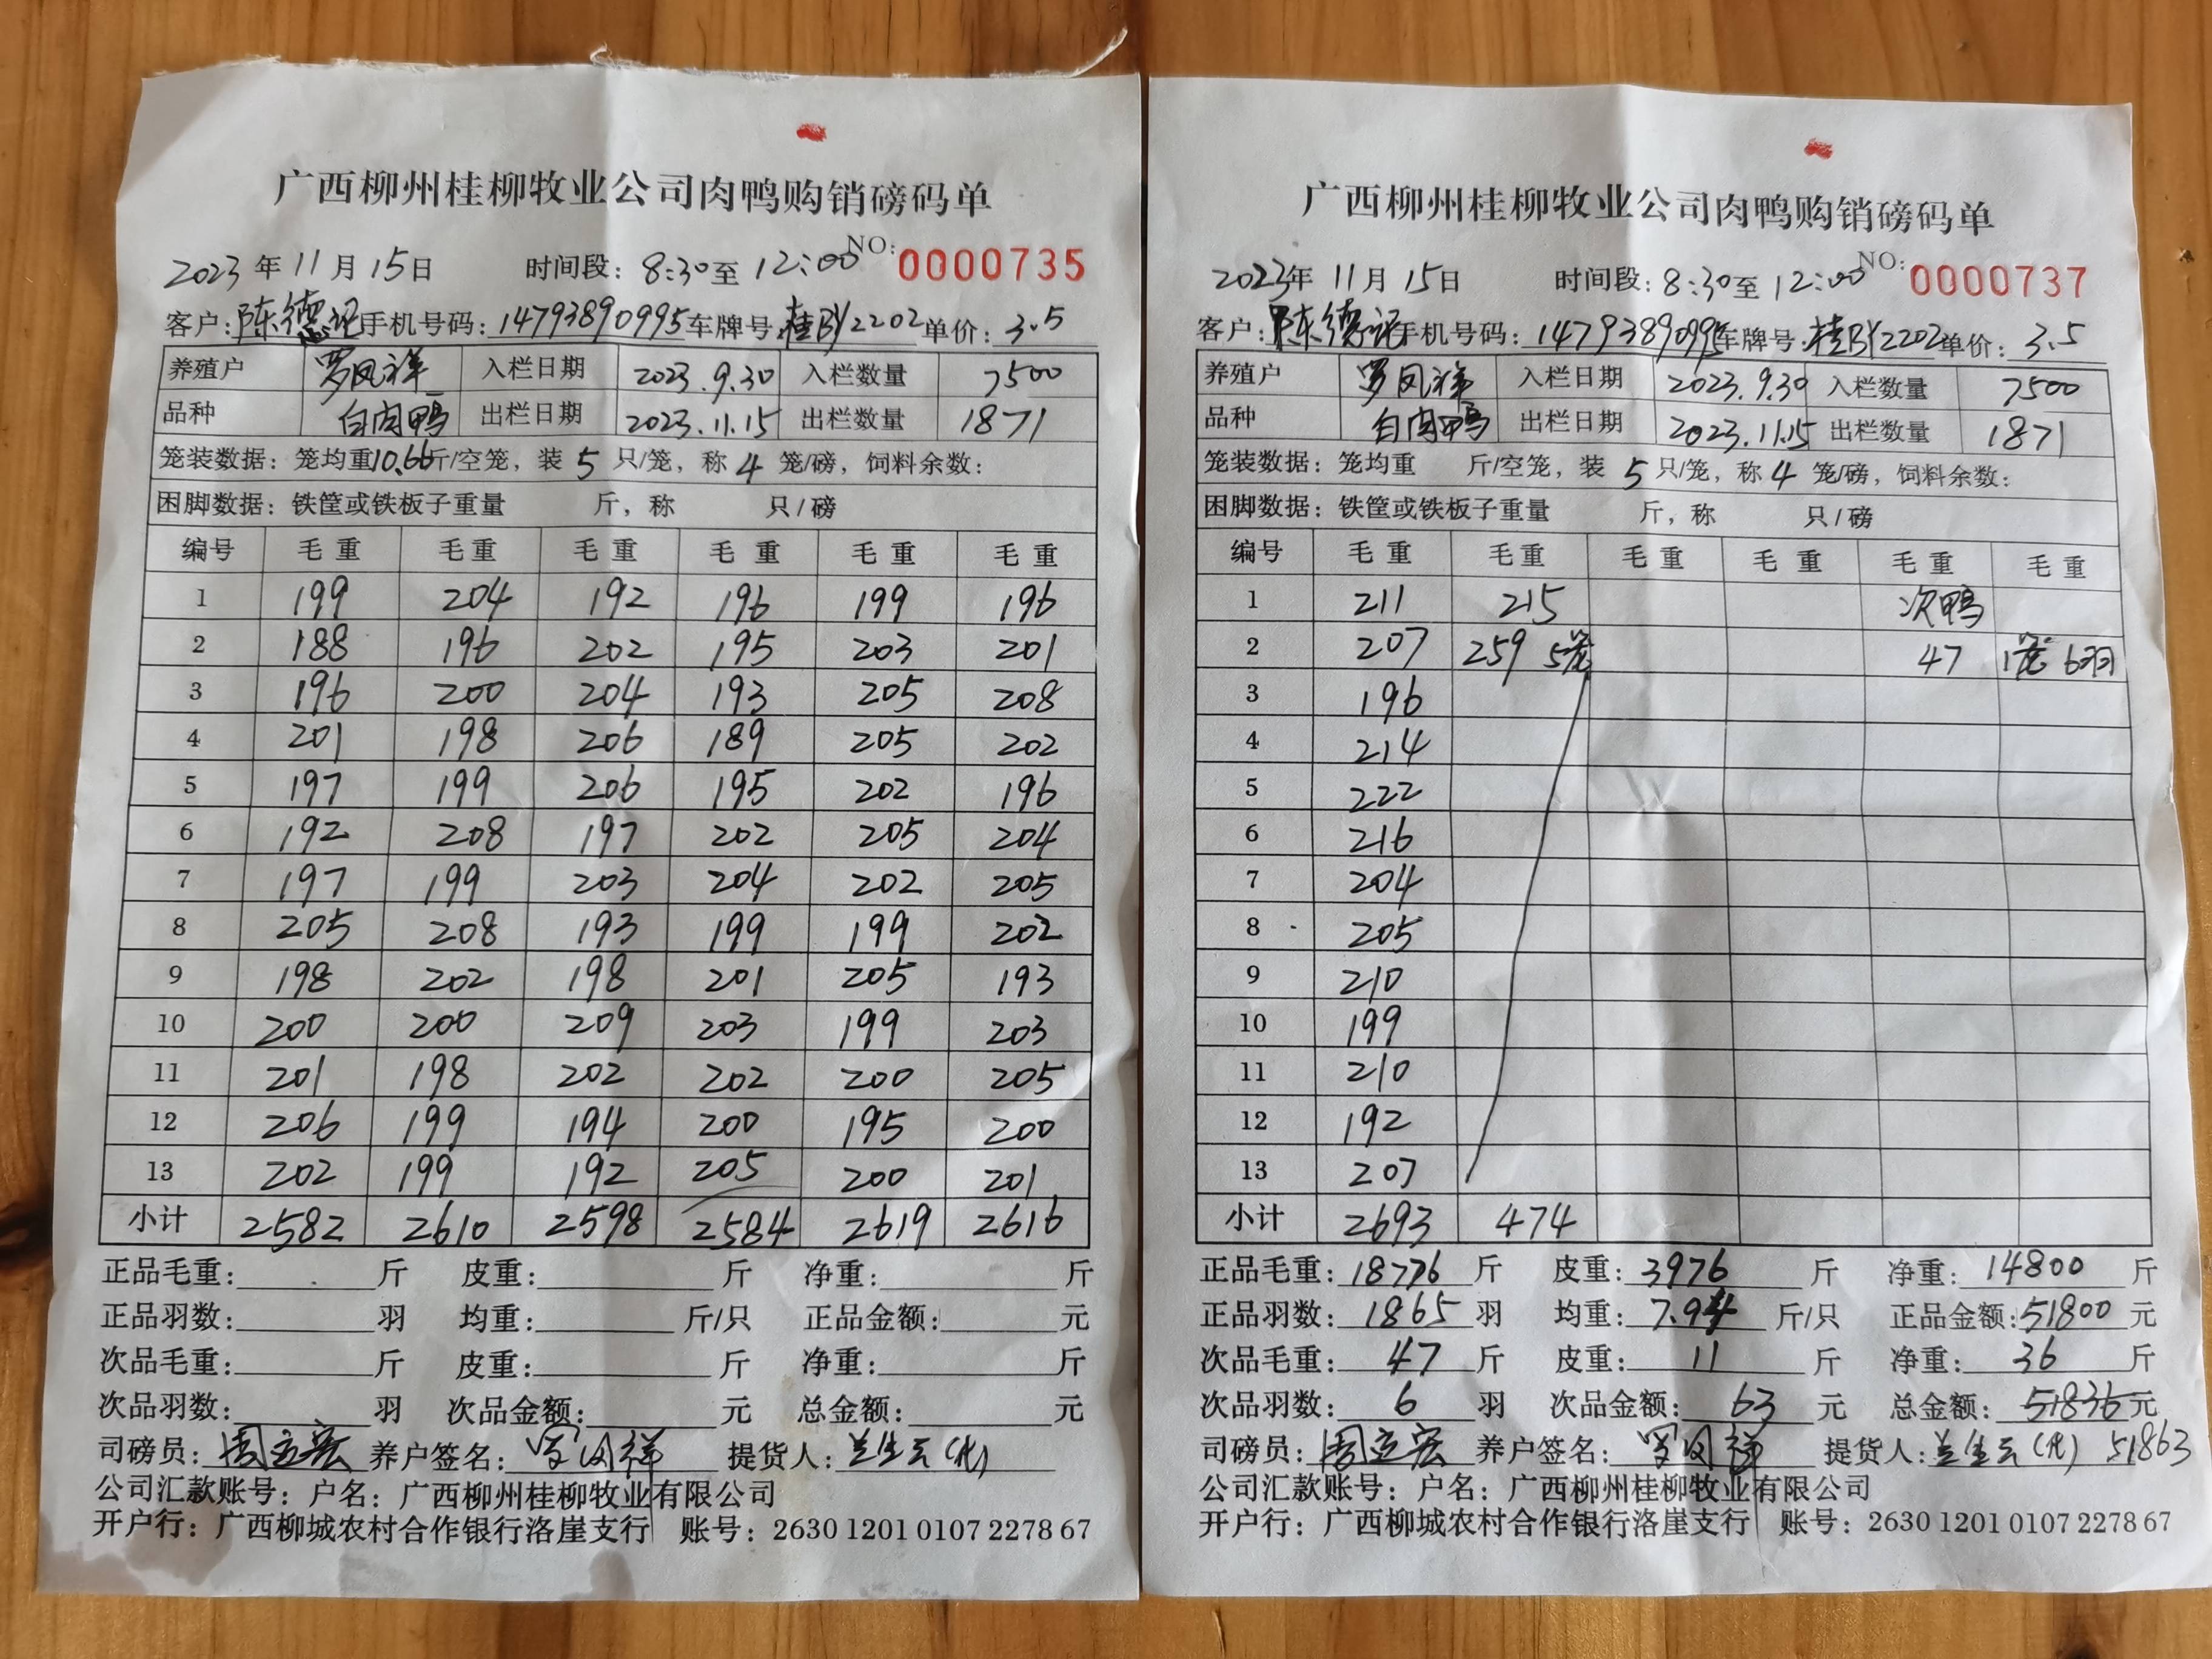 广西柳州桂柳牧业公司肉鸭购销磅码单
2023年11月15日 时间段：8:30至12:00 NO: 0000735
客户：陈德记 手机号码：14793890995 车牌号：桂BY2202 单价：3.5
养殖户 罗凤祥 入栏日期 2023.9.30 入栏数量 7500
品种 白肉鸭 出栏日期 2023.11.15 出栏数量 1871
笼装数据：笼均重10.66斤/空笼，装5只/笼，称4笼/磅，饲料余数：
困脚数据：铁筐或铁板子重量 斤，称 只/磅
编号 毛重 毛重 毛重 毛重 毛重 毛重
1 199 204 192 196 199 196
2 188 196 202 195 203 201
3 196 200 204 193 205 208
4 201 198 206 189 205 202
5 197 199 206 195 202 196
6 192 208 197 202 205 204
7 197 199 203 204 202 205
8 205 208 193 199 199 202
9 198 202 198 201 205 193
10 200 200 209 203 199 203
11 201 198 202 202 200 205
12 206 199 194 200 195 200
13 202 199 192 205 200 201
小计 2582 2610 2598 2584 2619 2616
正品毛重： 斤 皮重： 斤 净重： 斤
正品羽数： 羽 均重： 斤/只 正品金额： 元
次品毛重： 斤 皮重： 斤 净重： 斤
次品羽数： 羽 次品金额： 元 总金额： 元
司磅员：周立宏 养户签名：罗凤祥 提货人：兰生云(代)
公司汇款账号：户名：广西柳州桂柳牧业有限公司
开户行：广西柳城农村合作银行洛崖支行 账号：2630 1201 0107 2278 67
广西柳州桂柳牧业公司肉鸭购销磅码单
2023年11月15日 时间段：8:30至12:00 NO: 0000737
客户：陈德记 手机号码：14793890995 车牌号：桂BY2202 单价：3.5
养殖户 罗凤祥 入栏日期 2023.9.30 入栏数量 7500
品种 白肉鸭 出栏日期 2023.11.15 出栏数量 1871
笼装数据：笼均重 斤/空笼，装5只/笼，称4笼/磅，饲料余数：
困脚数据：铁筐或铁板子重量 斤，称 只/磅
编号 毛重 毛重 毛重 毛重 毛重 毛重
1 211 215 次鸭
2 207 259 5笼 47 1笼 6羽
3 196
4 214
5 222
6 216
7 204
8 205
9 210
10 199
11 210
12 192
13 207
小计 2693 474
正品毛重：18776斤 皮重：3976斤 净重：14800斤
正品羽数：1865羽 均重：7.94斤/只 正品金额：51800元
次品毛重：47斤 皮重：11斤 净重：36斤
次品羽数：6羽 次品金额：63元 总金额：51836元
司磅员：周立宏 养户签名：罗凤祥 提货人：兰生云(代) 51863
公司汇款账号：户名：广西柳州桂柳牧业有限公司
开户行：广西柳城农村合作银行洛崖支行 账号：2630 1201 0107 2278 67